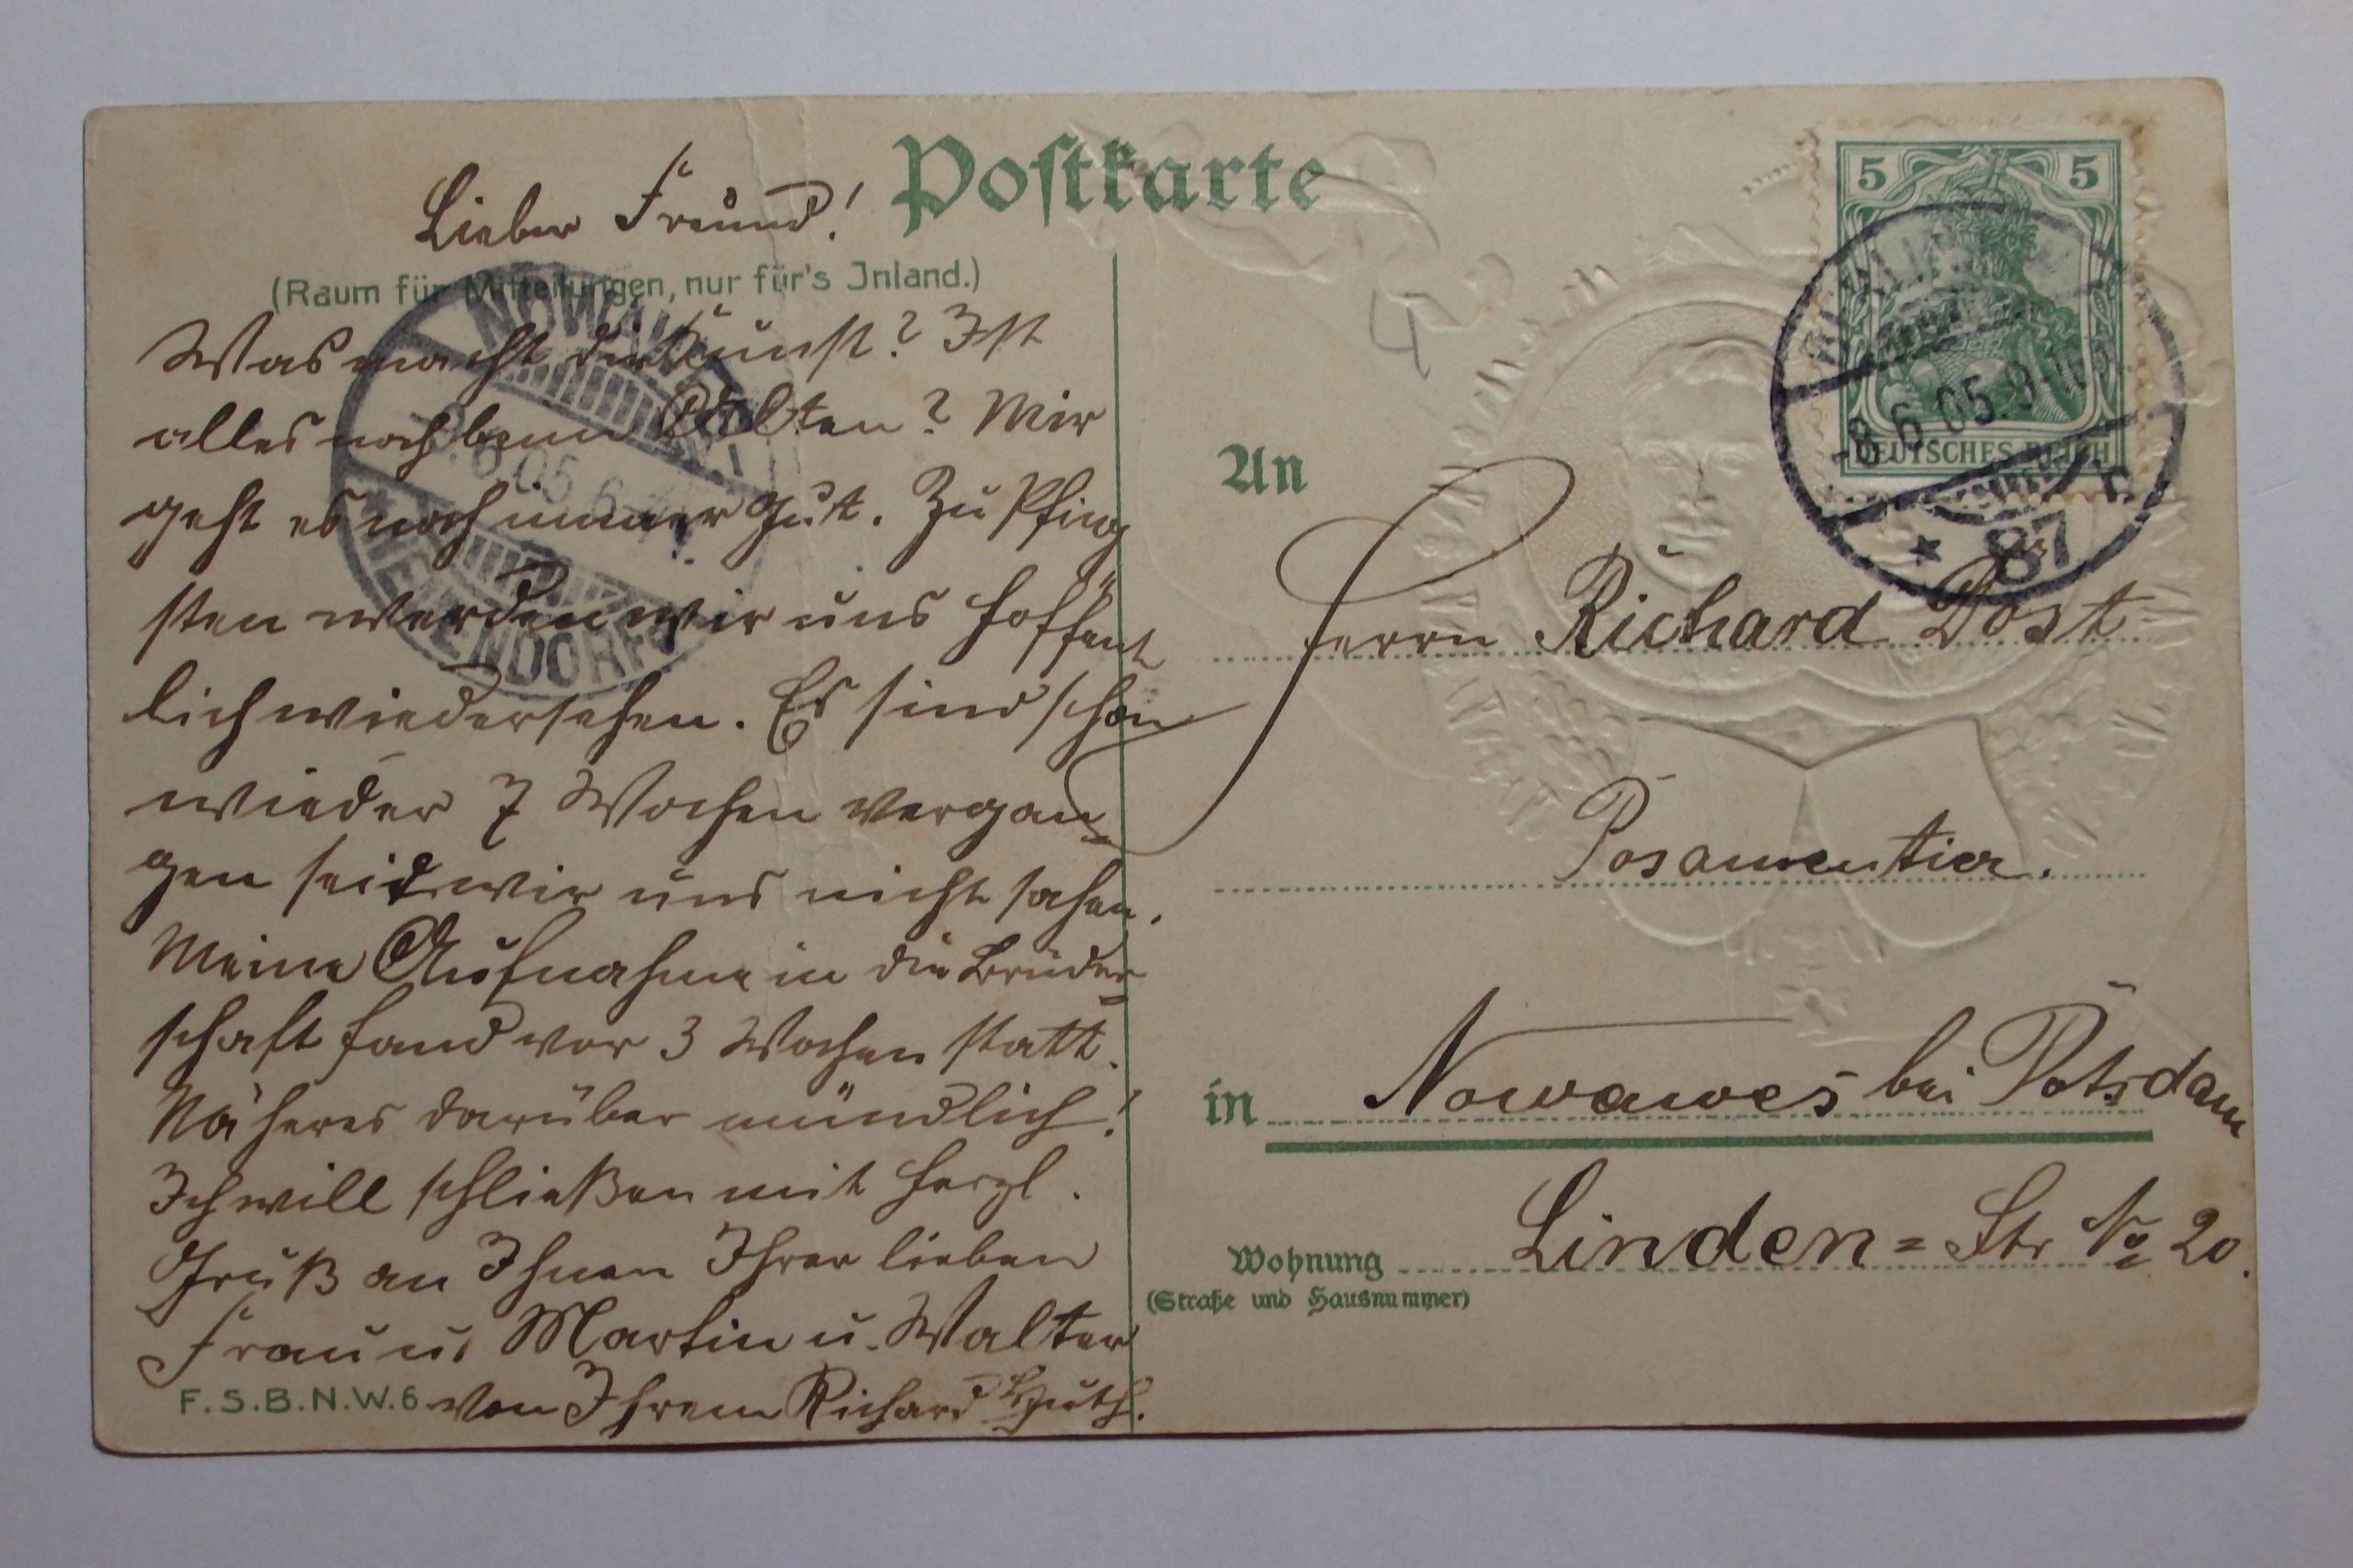 Postkarte
Lieber Freund!
(Raum für Mitteilungen, nur für's Inland.)
Was macht die Kunst? Ist
alles noch beim Alten? Mir
geht es noch immer gut. Zu Pfing
sten werden wir uns hoffent
lich wiedersehen. Es sind schon
wieder 7 Wochen vergan-
gen seit wir uns nicht sahen.
Meine Aufnahme in die Brüder-
schaft fand vor 3 Wochen statt.
Näheres darüber mündlich!
Ich will schließen mit herzl.
Gruß an Ihnen Ihrer lieben
Frau u. Martin u. Walter
von Ihrem Richard
F.S.B.N.W.6.
NOWAWES
8.6.05.6-
NEUENDORF
5 5
DEUTSCHES REICH
BERLIN
-8.6.05.9-10
* 87
An
Herrn Richard Dost
Posamentier.
in Nowawes bei Potsdam
Wohnung Linden=Str No 20.
(Straße und Hausnummer)